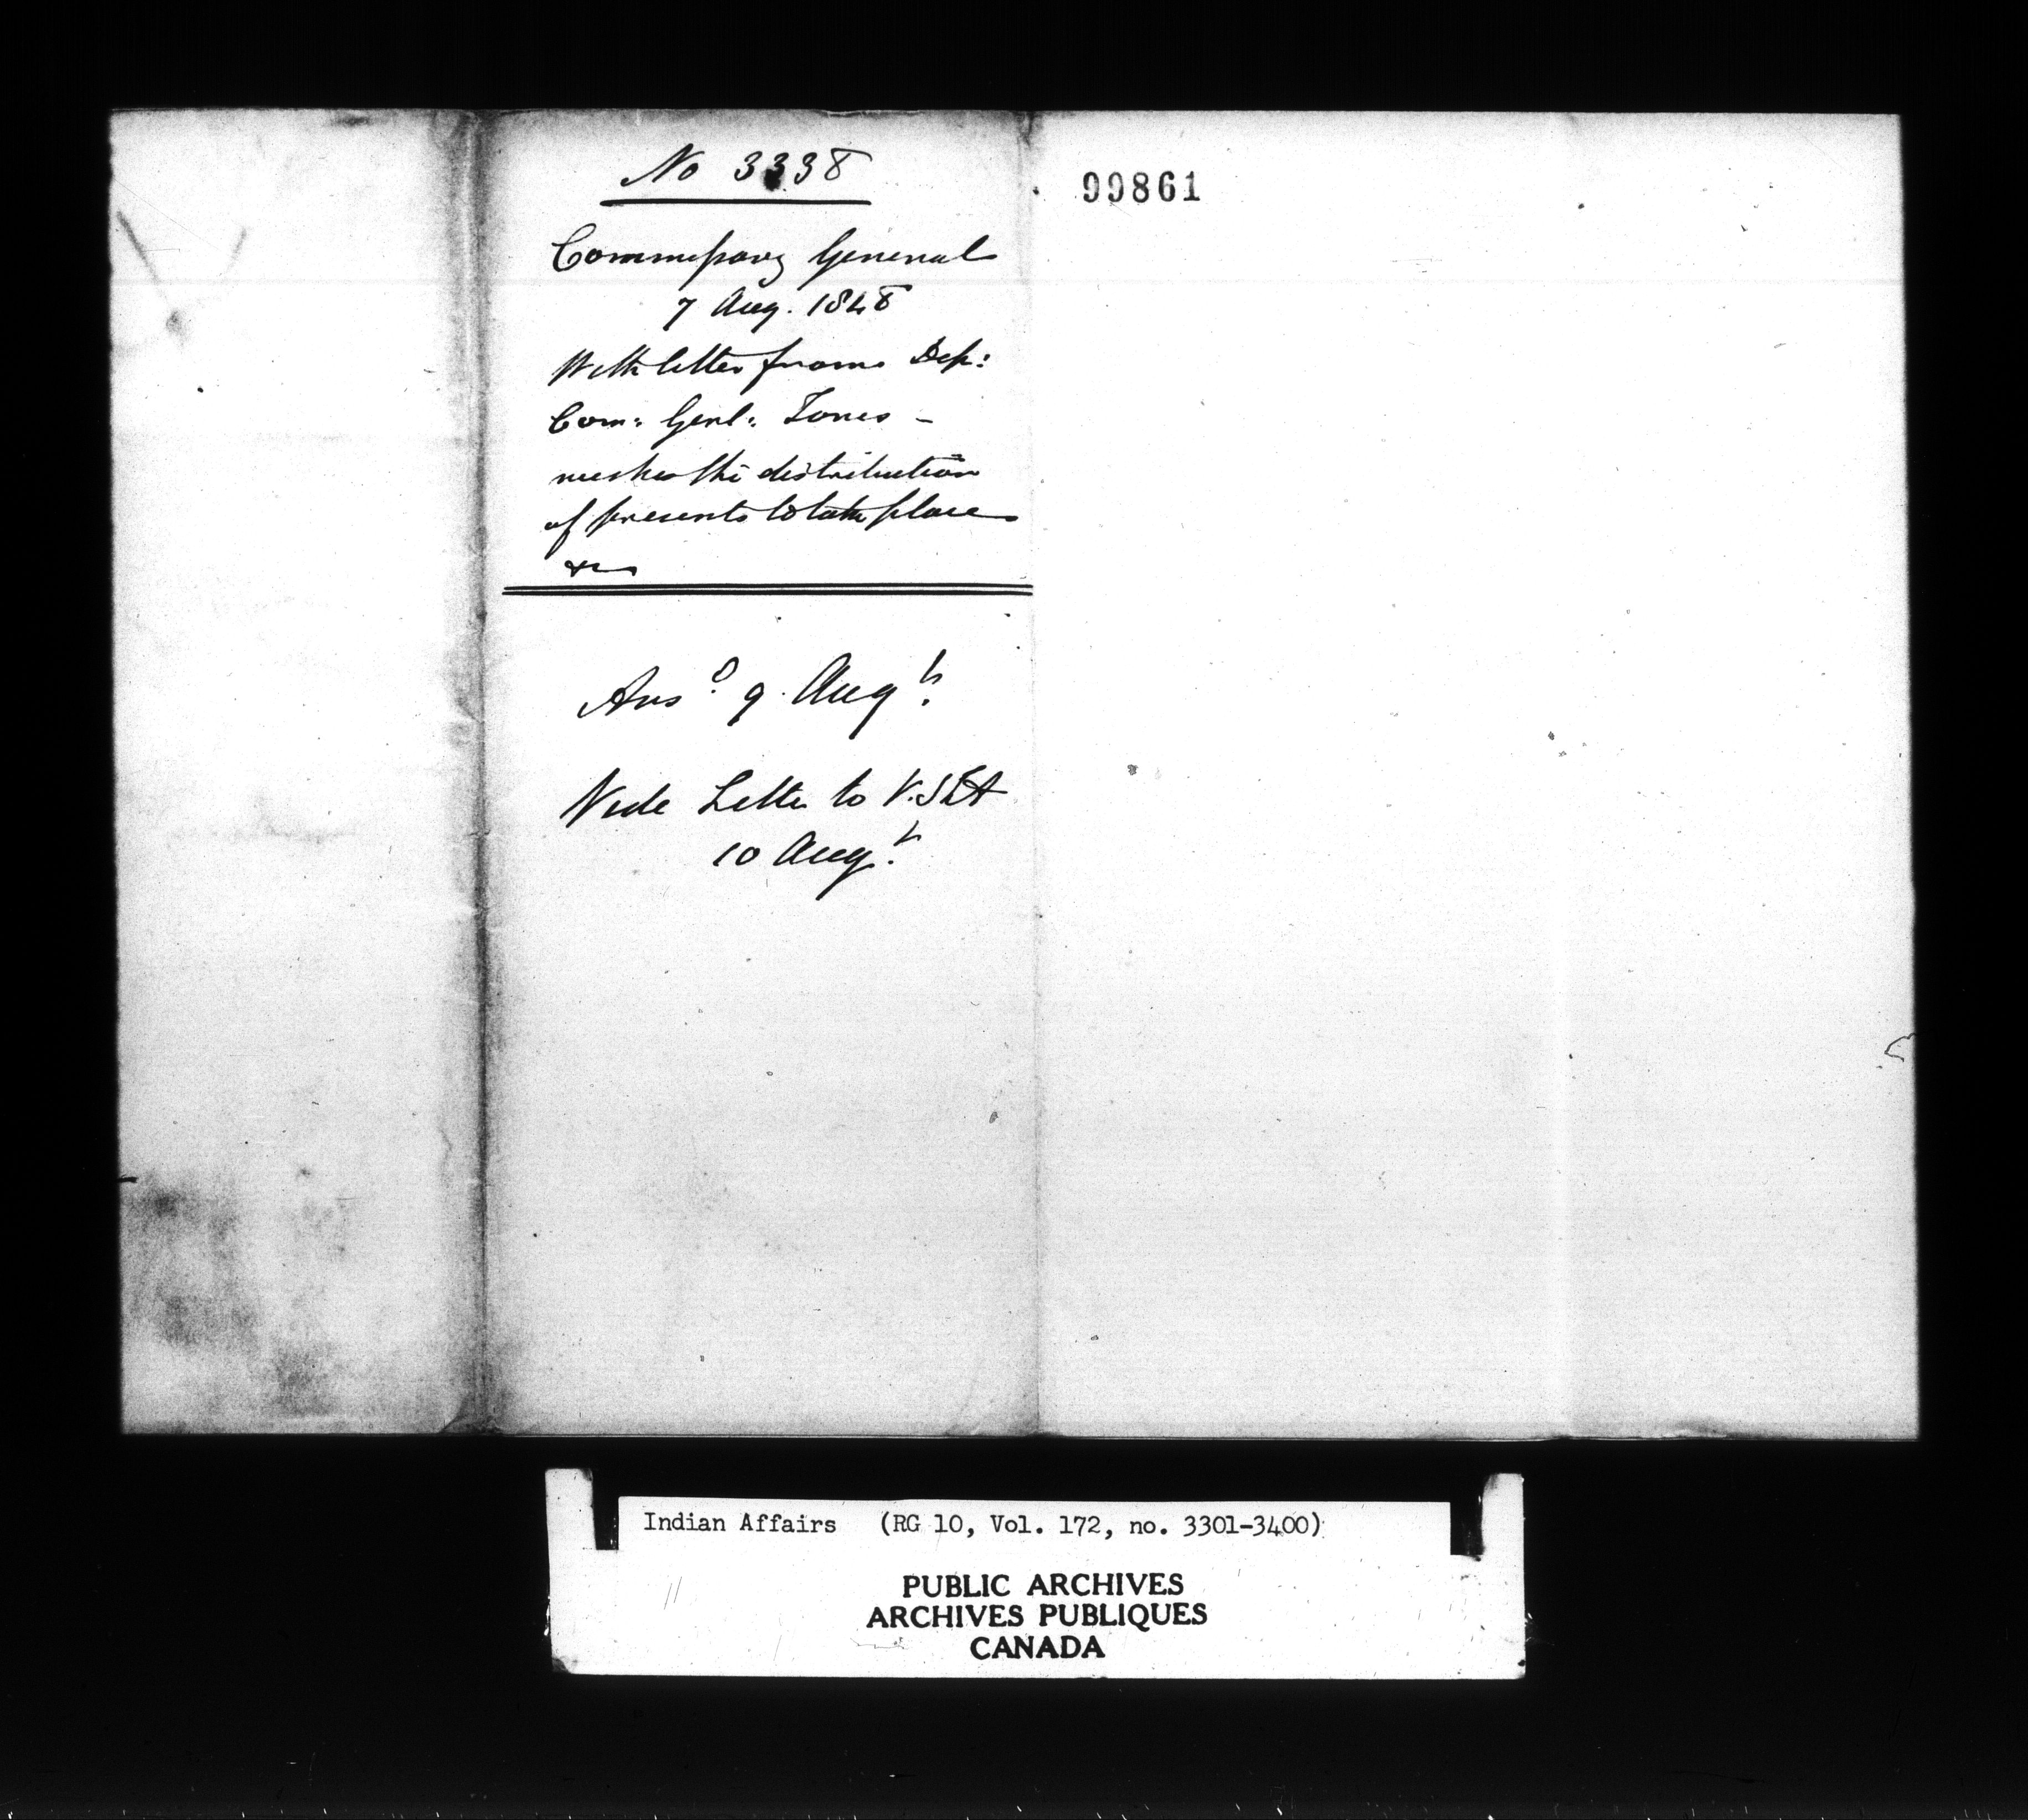 No 3338
Commissary General
7 Aug. 1848
With letter from Dep:
Com: Genl: Jones -
wishes the distribution
of presents to take place
&c
Ansd. 9. Augt.
Vide Letter to V.S.I.A
10 Augt.
99861
Indian Affairs (RG 10, Vol. 172, no. 3301-3400)
PUBLIC ARCHIVES
ARCHIVES PUBLIQUES
CANADA